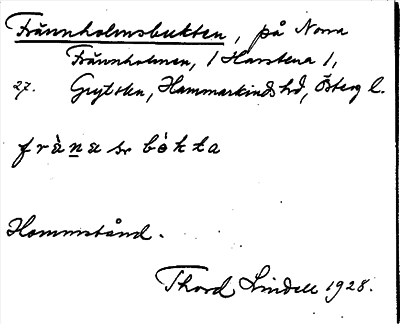 Frännholmsbukten, på Norra
Frännholmen, / Harstena /,
27. Gryts skn, Hammarkinds hd, Österg l.
frὰnasbo̍kta
Hammstånd.
Thord Lindell 1928.